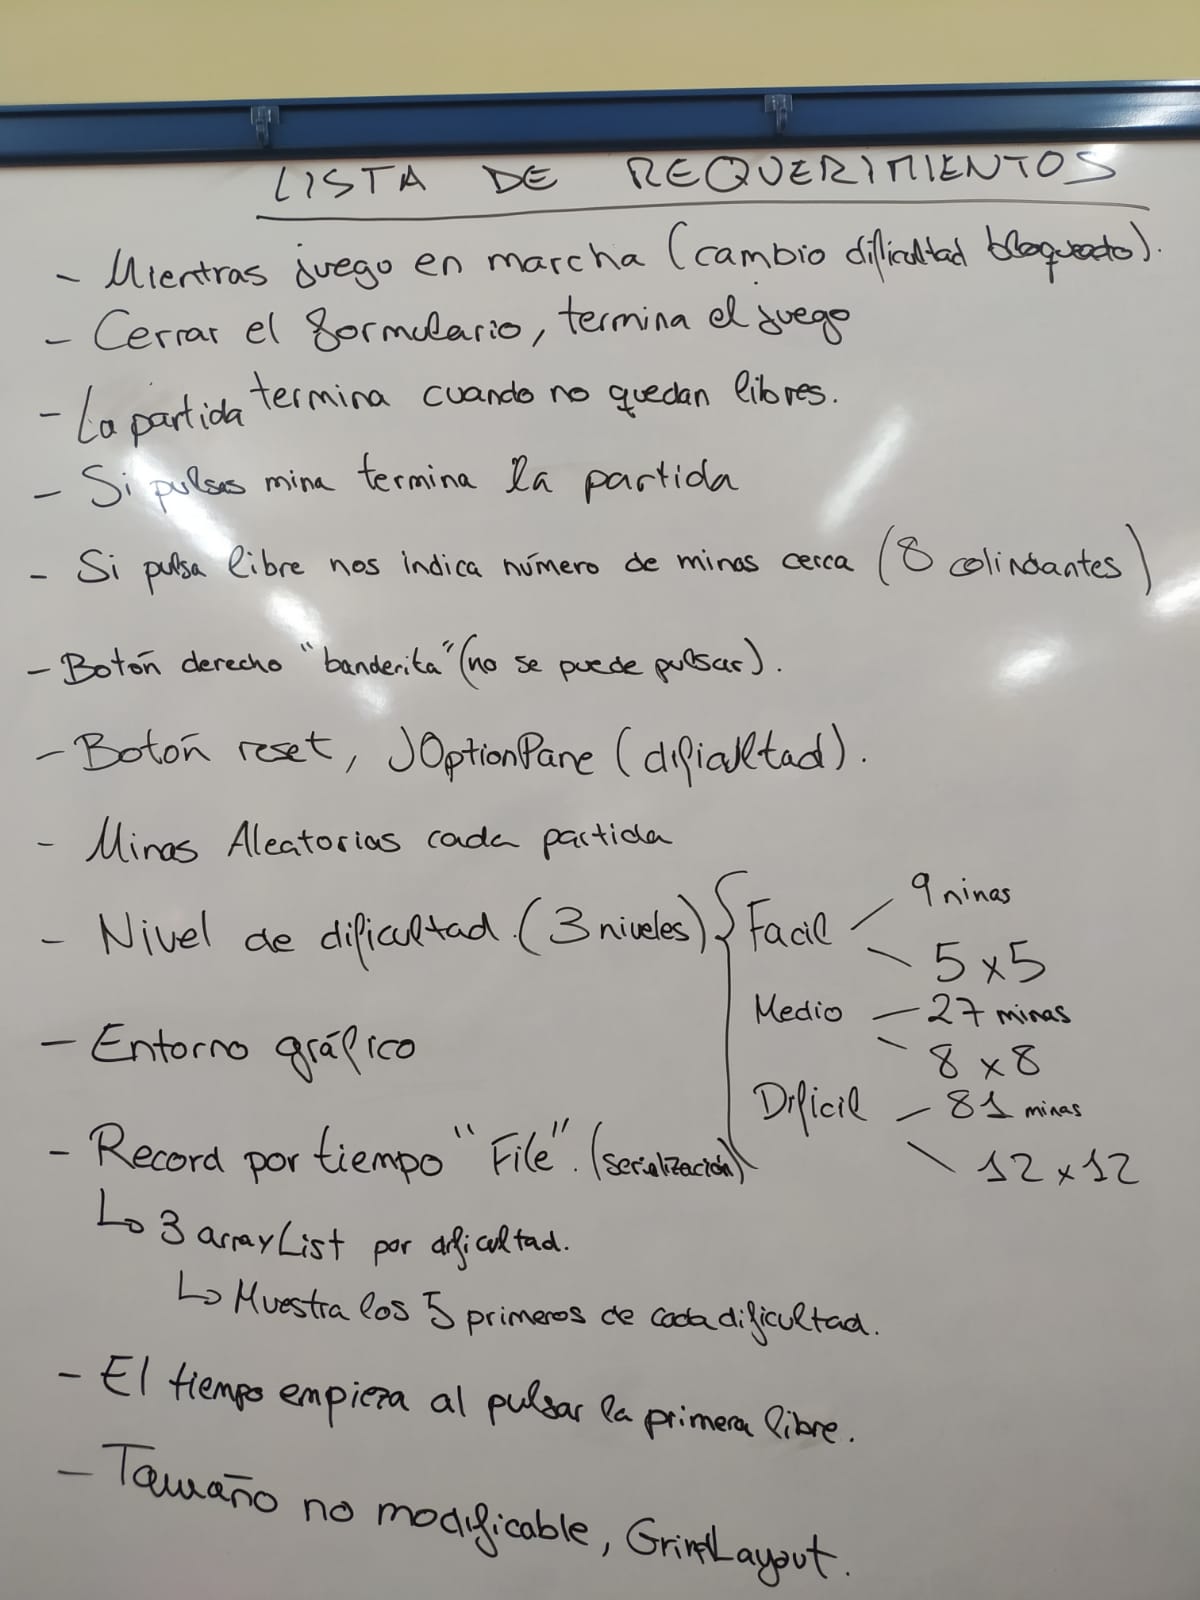 LISTA DE REQUERIMIENTOS
- Mientras juego en marcha (cambio dificultad bloqueado).
- Cerrar el formulario, termina el juego
- La partida termina cuando no quedan libres.
- Si pulsas mina termina la partida
- Si pulsa libre nos indica número de minas cerca (8 colindantes)
- Botón derecho "banderita" (no se puede pulsar).
- Botón reset, JOptionPane (dificultad).
- Minas Aleatorias cada partida
- Nivel de dificultad. (3 niveles) { Facil - 9 ninas
- 5x5
Medio - 27 minas
- 8 x 8
Dificil - 81 minas
- 12 x 12
- Entorno gráfico
- Record por tiempo "File". (serialización)
↳ 3 arrayList por dificultad.
↳ Muestra los 5 primeros de cada dificultad.
- El tiempo empieza al pulsar la primera libre.
- Tamaño no modificable,